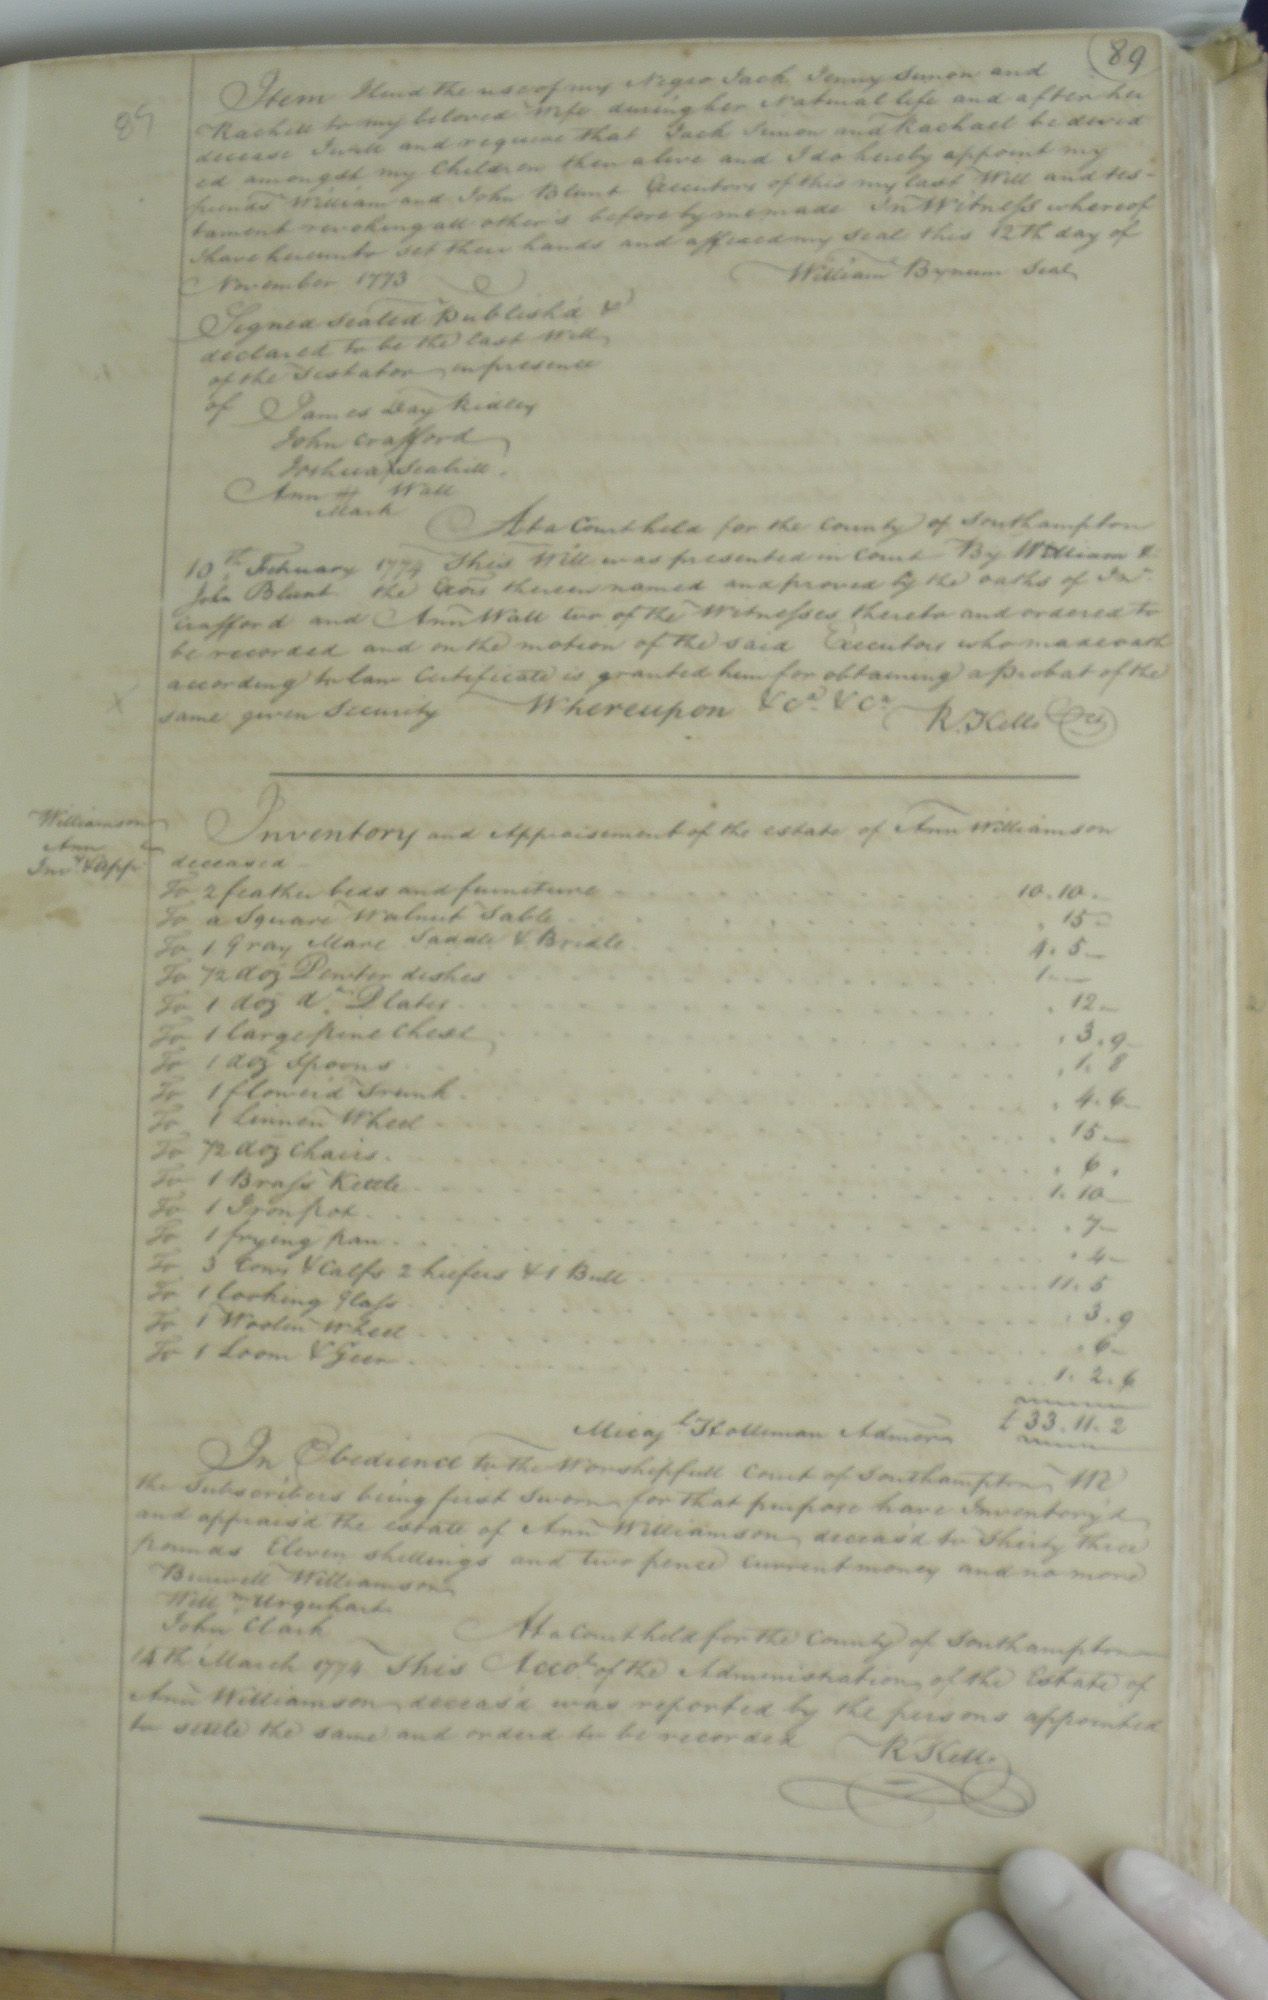 89
89
Item I lend the use of my Negro Jack Jenny Simon and
Rachell to my beloved Wife during her Natural life and after her
decease I will and require that Jack Simon and Rachael be devid
ed amongst my Children then alive and I do hereby appoint my
friends William and John Blunt Executors of this my last Will and tes-
tament revoking all other's before by me made In Witness whereof
I have hereunto set their hands and affixed my seal this 12th day of
November 1773 William Bynum Seal
Signed Sealed Publish'd &
declared to be the last Will
of the Testator in presence
of James Day Ridley
John Crafford
Joshua X Seahill.
Ann # Wall
Mark
At a Court held for the County of Southampton
10th February 1774 This Will was presented in Court By William &
John Blunt the Exors therein named and proved by the oaths of Jno
Crafford and Ann Wall two of the Witnesses thereto and ordered to
be recorded and on the motion of the said Executors who made oath
according to law Certificate is granted him for obtaining a Probat of the
same given Security Whereupon &ca. &ca. R. Kello
Williamson
Ann
Invy & App
Inventory and Appraisement of the estate of Ann Williamson
deceased
To 2 feather beds and furniture 10.10.-
To a Square Walnut Table . 15-
To 1 Gray Mare Saddle & Bridle 4.5-
To 1/2 doz Pewter dishes 1.--
To 1 doz do. Plates . 12-
To 1 large pine Chest . 3.9-
To 1 doz Spoons . 1.8
To 1 flower'd Trunk . 4.6-
To 1 Linnen Wheel . 15-
To 1/2 doz Chairs . 6.
To 1 Brass Kettle 1.10-
To 1 Iron pot . 7-
To 1 frying pan . 4-
To 3 Cows & Calfs 2 hiefers & 1 Bull 11.5
To 1 looking glass . 3.9
To 1 Woolin Wheel . 6-
To 1 Loom & Geer 1.2.6
Micajh Holleman Admor £33.11.2
In Obedience to the Worshipfull Court of Southampton We
the Subscribers being first Sworn for that purpose have Inventory'd
and apprais'd the estate of Ann Williamson deceas'd to Thirty three
pounds Eleven shillings and two pence Current money and no more
Burwell Williamson
Willm Urquhart
John Clark At a Court held for the County of Southampton
14th March 1774 This Accot of the Administration of the Estate of
Ann Williamson deceas'd was reported by the persons appointed
to settle the same and orderd to be recorded R Kello